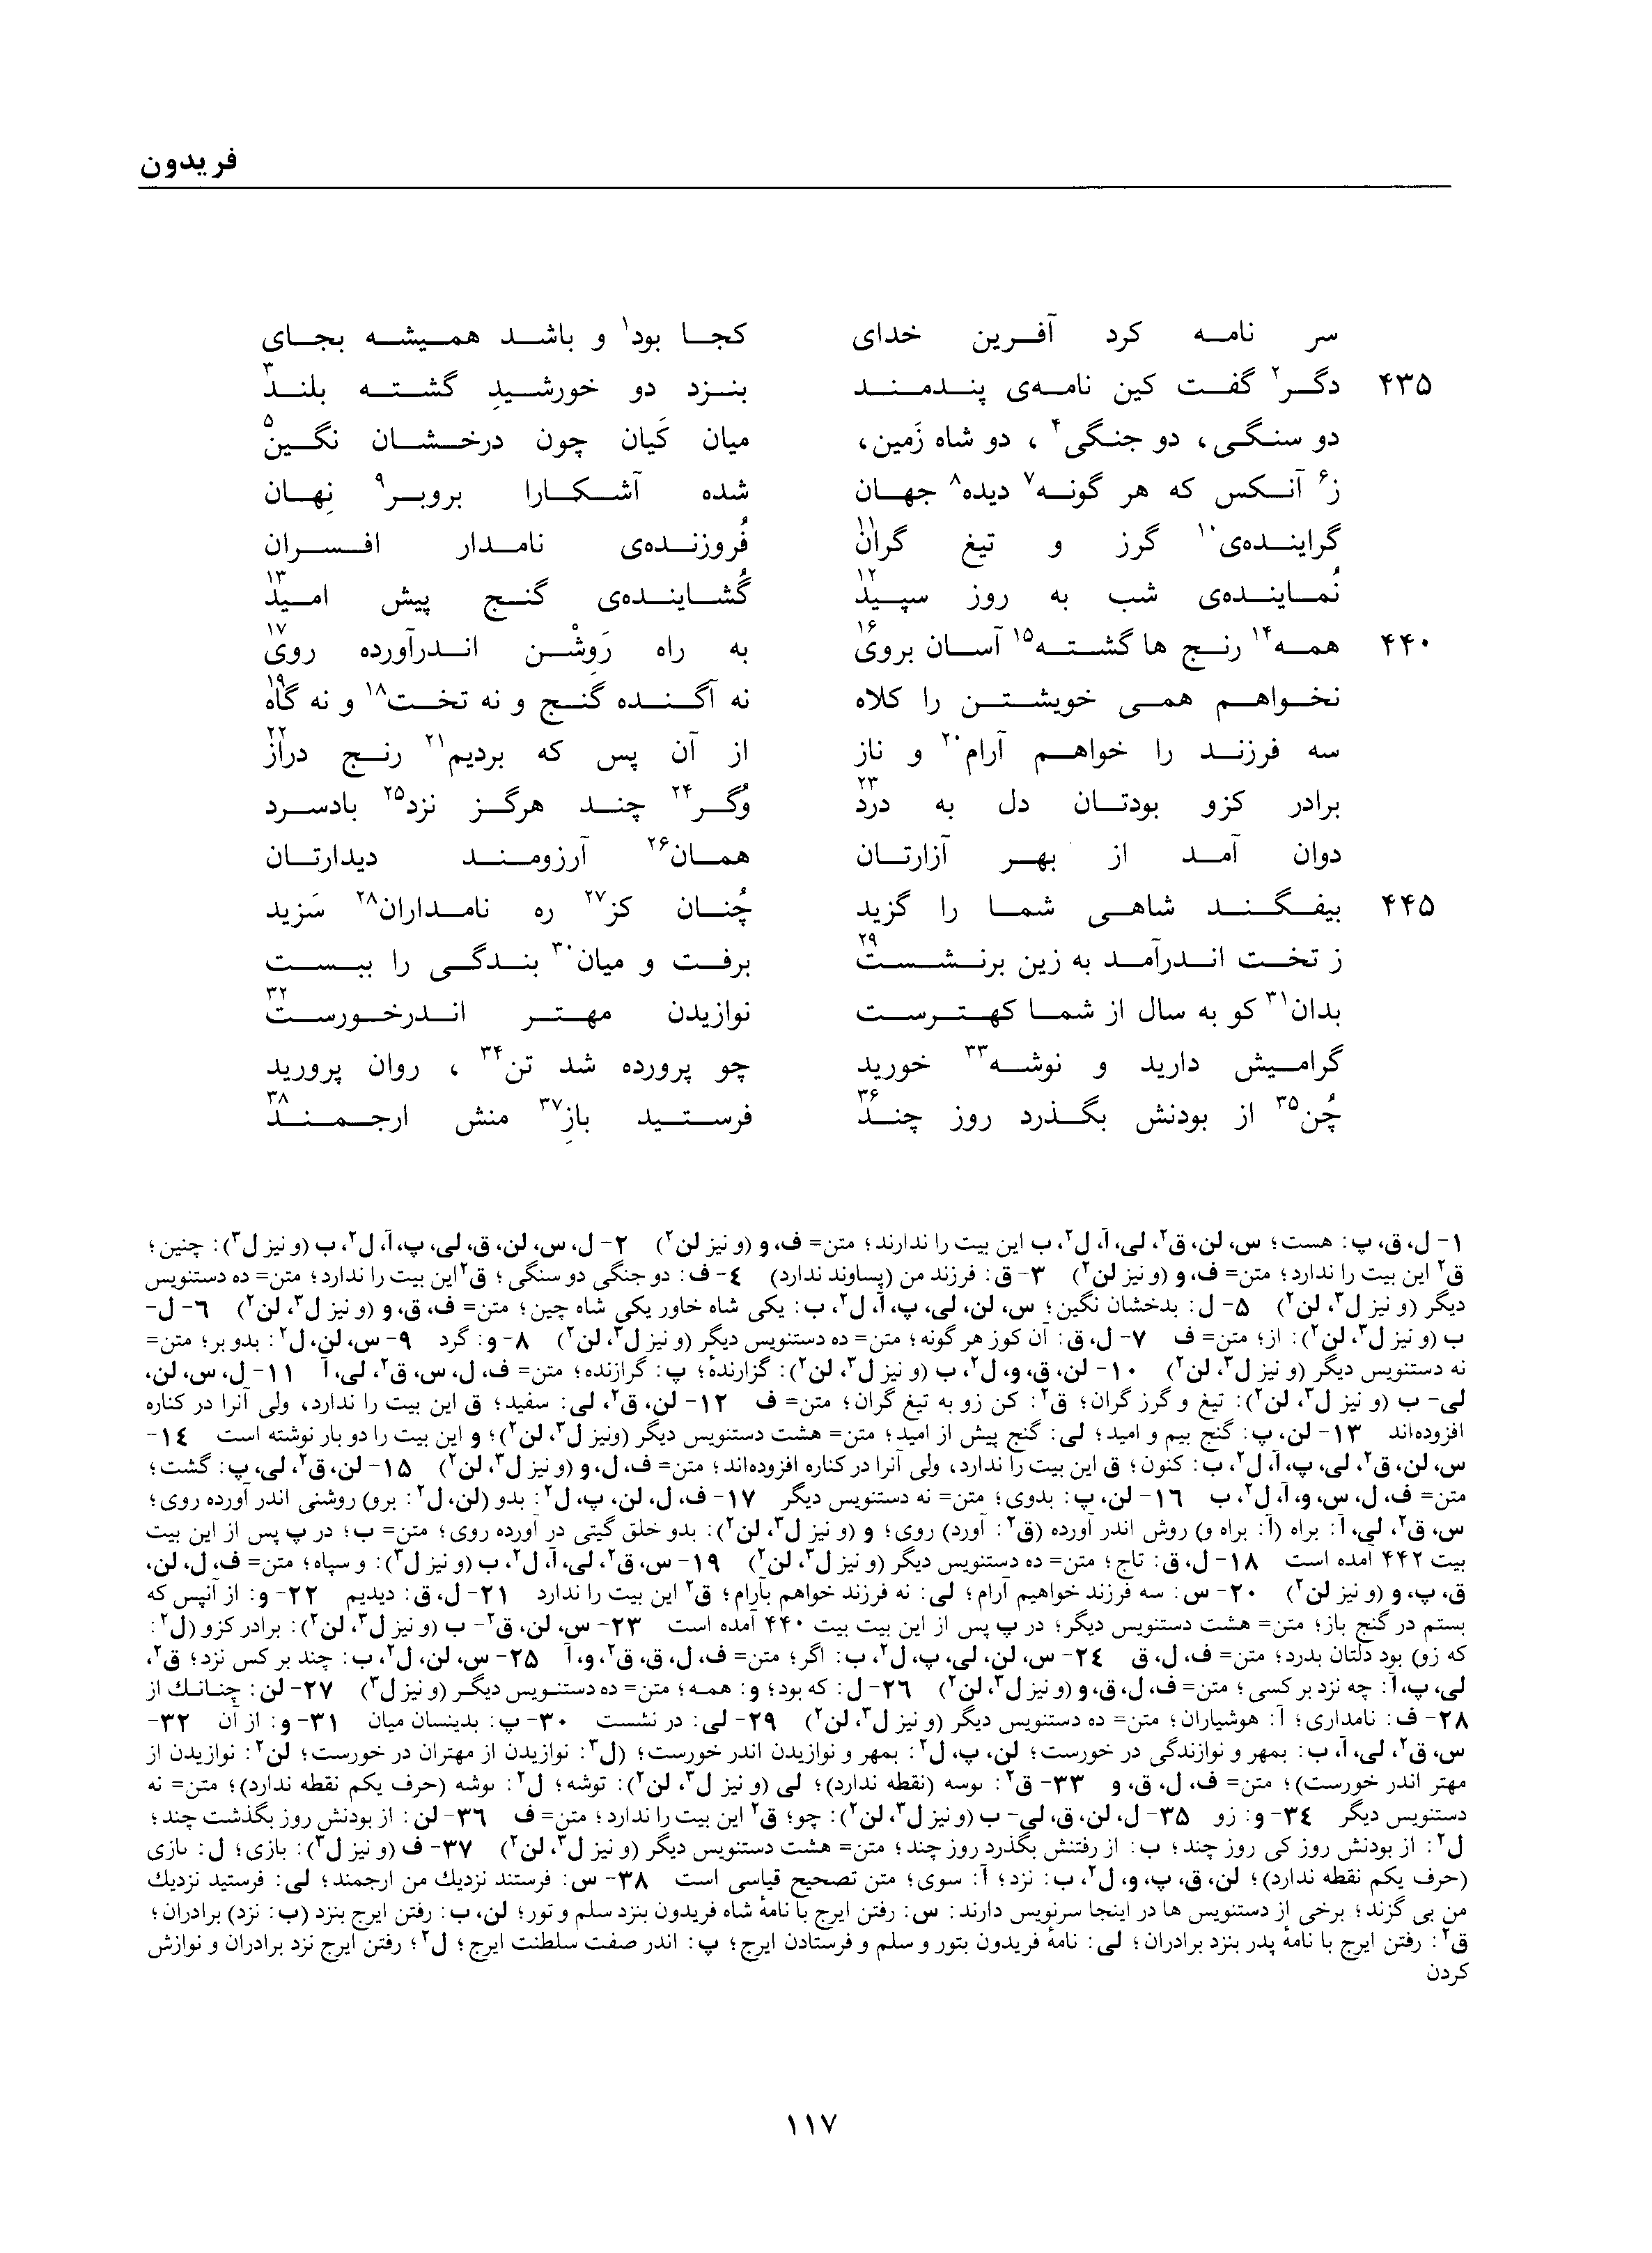 فریدون
سر نامه کرد آفرین خدای کجا بود۱ و باشد همیشه بجای
۴۳۵ دگر۲ گفت کین نامه‌ی پندمند بنزد دو خورشیدِ گشته بلند۳
دو سنگی، دو جنگی۴، دو شاه زَمین، میان کَیان چون درخشان نگین۵
ز۶ آنکس که هر گونه۷ دیده۸ جهان شده آشکارا بروبر۹ نِهان
گراینده‌ی۱۰ گرز و تیغ گران۱۱ فُروزنده‌ی نامدار افسران
نُماینده‌ی شب به روز سپید۱۲ گُشاینده‌ی گنج پیش امید۱۳
۴۴۰ همه۱۴ رنج ها گشته۱۵ آسان بروی۱۶ به راه رَوِشْن اندرآورده روی۱۷
نخواهم همی خویشتن را کلاه نه آگنده گنج و نه تخت۱۸ و نه گاه۱۹
سه فرزند را خواهم آرام۲۰ و ناز از آن پس که بردیم۲۱ رنج دراز۲۲
برادر کزو بودتان دل به درد۲۳ وُگر۲۴ چند هرگز نزد۲۵ بادسرد
دوان آمد از بهر آزارتان همان۲۶ آرزومند دیدارتان
۴۴۵ بیفگند شاهی شما را گزید چُنان کز۲۷ ره نامداران۲۸ سَزید
ز تخت اندرآمد به زین برنشست۲۹ برفت و میان۳۰ بندگی را ببست
بدان۳۱ کو به سال از شما کهترست نوازیدن مهتر اندرخورست۳۲
گرامیش دارید و نوشه۳۳ خورید چو پرورده شد تن۳۴، روان پرورید
چُن۳۵ از بودنش بگذرد روز چند۳۶ فرستید بازِ۳۷ منش ارجمند۳۸
۱- ل، ق، پ: هست؛ س، لن، ق۲، لی، آ، ل۲، ب این بیت را ندارند؛ متن= ف، و (و نیز لن۲) ۲- ل، س، لن، ق، لی، پ، آ، ل۲، ب (و نیز ل۳): چنین؛
ق۲ این بیت را ندارد؛ متن= ف، و (و نیز لن۲) ۳- ق: فرزند من (پساوند ندارد) ٤- ف: دو جنگی دو سنگی؛ ق۲ این بیت را ندارد؛ متن= ده دستنویس
دیگر (و نیز ل۳، لن۲) ۵- ل: بدخشان نگین؛ س، لن، لی، پ، آ، ل۲، ب: یکی شاه خاور یکی شاه چین؛ متن= ف، ق، و (و نیز ل۳، لن۲) ٦- ل-
ب (و نیز ل۳، لن۲): از؛ متن= ف ۷- ل، ق: آن کوز هر گونه؛ متن= ده دستنویس دیگر (و نیز ل۳، لن۲) ۸- و: گرد ۹- س، لن، ل۲: بدو بر؛ متن=
نه دستنویس دیگر (و نیز ل۳، لن۲) ۱۰- لن، ق، و، ل۲، ب (و نیز ل۳، لن۲): گزارندهٔ؛ پ: گرازنده؛ متن= ف، ل، س، ق۲، لی، آ ۱۱- ل، س، لن،
لی- ب (و نیز ل۳، لن۲): تیغ و گرز گران؛ ق۲: کن زو به تیغ گران؛ متن= ف ۱۲- لن، ق۲، لی: سفید؛ ق این بیت را ندارد، ولی آنرا در کناره
افزوده‌اند ۱۳- لن، پ: گنج بیم و امید؛ لی: گنج پیش از امید؛ متن= هشت دستنویس دیگر (ونیز ل۳، لن۲)؛ و این بیت را دو بار نوشته است ۱٤-
س، لن، ق۲، لی، پ، آ، ل۲، ب: کنون؛ ق این بیت را ندارد، ولی آنرا در کناره افزوده‌اند؛ متن= ف، ل، و (و نیز ل۳، لن۲) ۱۵- لن، ق۲، لی، پ: گشت؛
متن= ف، ل، س، و، آ، ل۲، ب ۱٦- لن، پ: بدوی؛ متن= نه دستنویس دیگر ۱۷- ف، ل، لن، پ، ل۲: بدو (لن، ل۲: برو) روشنی اندر آورده روی؛
س، ق۲، لی، آ: براه (آ: براه و) روش اندر آورده (ق۲: آورد) روی؛ و (و نیز ل۳، لن۲): بدو خلق گیتی در آورده روی؛ متن= ب؛ در پ پس از این بیت
بیت ۴۴۲ آمده است ۱۸- ل، ق: تاج؛ متن= ده دستنویس دیگر (و نیز ل۳، لن۲) ۱۹- س، ق۲، لی، آ، ل۲، ب (و نیز ل۳): و سپاه؛ متن= ف، ل، لن،
ق، پ، و (و نیز لن۲) ۲۰- س: سه فرزند خواهیم آرام؛ لی: نه فرزند خواهم بآرام؛ ق۲ این بیت را ندارد ۲۱- ل، ق: دیدیم ۲۲- و: از آنپس که
بستم در گنج باز؛ متن= هشت دستنویس دیگر؛ در پ پس از این بیت بیت ۴۴۰ آمده است ۲۳- س، لن، ق۲- ب (و نیز ل۳، لن۲): برادر کزو (ل۲:
که زو) بود دلتان بدرد؛ متن= ف، ل، ق ۲٤- س، لن، لی، پ، ل۲، ب: اگر؛ متن= ف، ل، ق، ق۲، و، آ ۲۵- س، لن، ل۲، ب: چند بر کس نزد؛ ق۲،
لی، پ، آ: چه نزد بر کسی؛ متن= ف، ل، ق، و (و نیز ل۳، لن۲) ۲٦- ل: که بود؛ و: همه؛ متن= ده دستنویس دیگر (و نیز ل۳) ۲۷- لن: چنانك از
۲۸- ف: نامداری؛ آ: هوشیاران؛ متن= ده دستنویس دیگر (و نیز ل۳، لن۲) ۲۹- لی: در نشست ۳۰- پ: بدینسان میان ۳۱- و: از آن ۳۲-
س، ق۲، لی، آ، ب: بمهر و نوازندگی در خورست؛ لن، پ، ل۲: بمهر و نوازیدن اندر خورست؛ (ل۳: نوازیدن از مهتران در خورست؛ لن۲: نوازیدن از
مهتر اندر خورست)؛ متن= ف، ل، ق، و ۳۳- ق۲: ىوسه (نقطه ندارد)؛ لی (و نیز ل۳، لن۲): توشه؛ ل۲: ىوشه (حرف یکم نقطه ندارد)؛ متن= نه
دستنویس دیگر ۳٤- و: زو ۳۵- ل، لن، ق، لی- ب (و نیز ل۳، لن۲): چو؛ ق۲ این بیت را ندارد؛ متن= ف ۳٦- لن: از بودنش روز بگذشت چند؛
ل۲: از بودنش روز کی روز چند؛ ب: از رفتنش بگذرد روز چند؛ متن= هشت دستنویس دیگر (و نیز ل۳، لن۲) ۳۷- ف (و نیز ل۳): بازی؛ ل: ىازی
(حرف یکم نقطه ندارد)؛ لن، ق، پ، و، ل۲، ب: نزد؛ آ: سوی؛ متن تصحیح قیاسی است ۳۸- س: فرستند نزدیك من ارجمند؛ لی: فرستید نزدیك
من بی گزند؛ برخی از دستنویس ها در اینجا سرنویس دارند: س: رفتن ایرج با نامهٔ شاه فریدون بنزد سلم و تور؛ لن، ب: رفتن ایرج بنزد (ب: نزد) برادران؛
ق۲: رفتن ایرج با نامهٔ پدر بنزد برادران؛ لی: نامهٔ فریدون بتور و سلم و فرستادن ایرج؛ پ: اندر صفت سلطنت ایرج؛ ل۲؛ رفتن ایرج نزد برادران و نوازش
کردن
۱۱۷